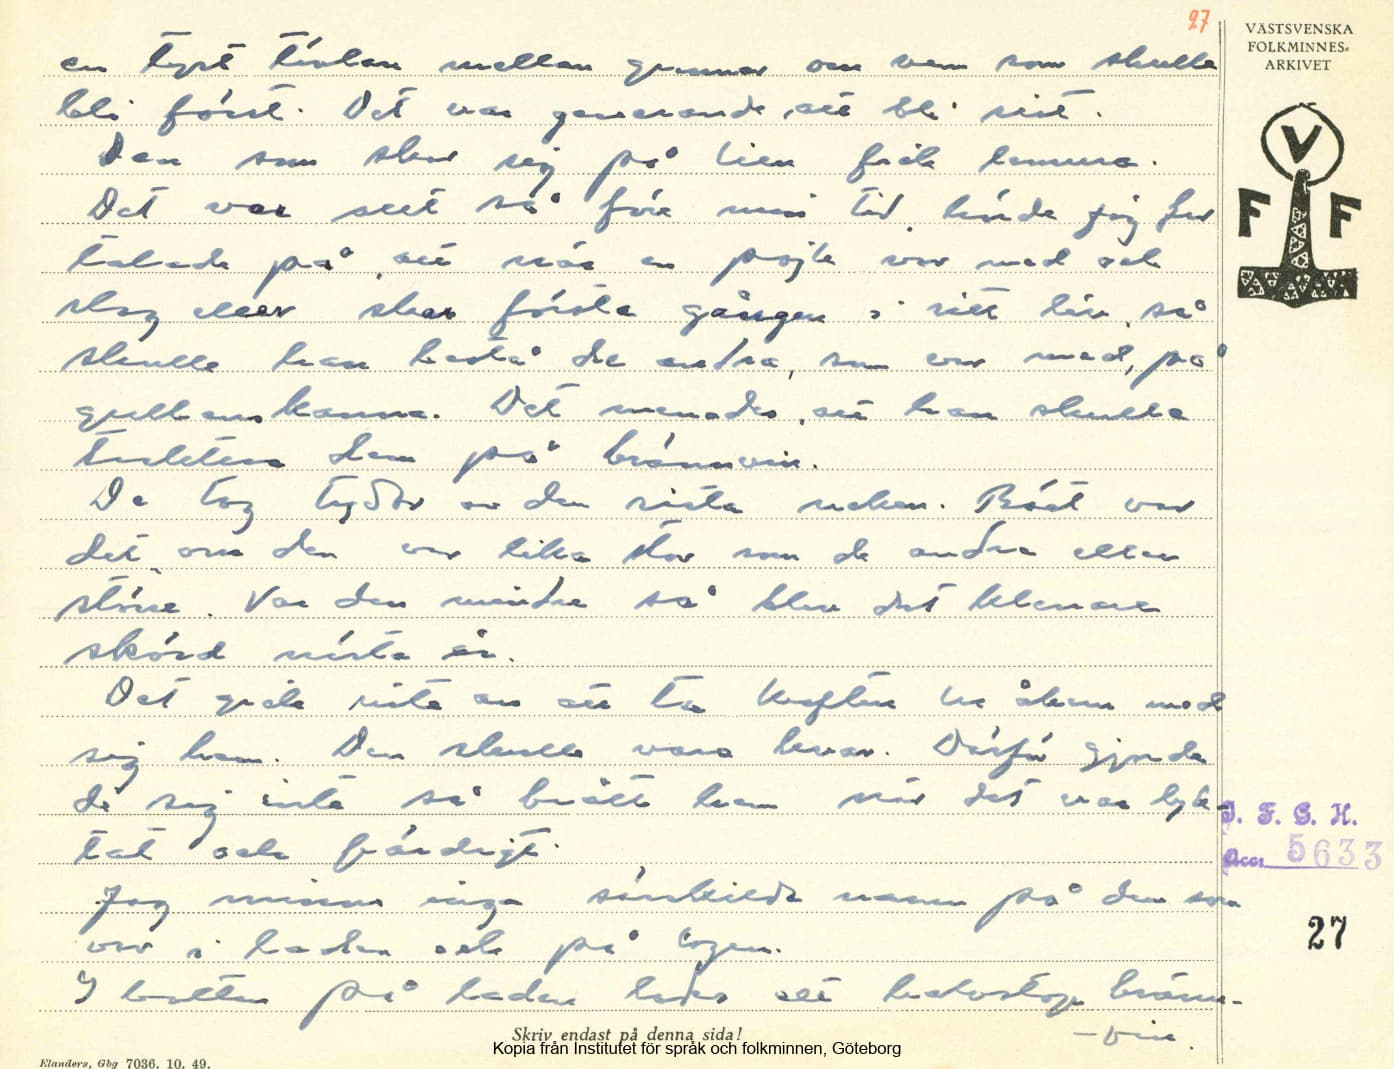 27
VÄSTSVENSKA
FOLKMINNES-
ARKIVET
V
F F
en tyst tävlan mellan grannar om vem som skulle
bli först. Det var generande att bli sist.
Den som skar sig på lien fick
Det var sett så före min tid, hörde jag far
talade på, att när en pojk var med och
slog eller skar första gången i sitt liv, så
skulle han de andra, som var med, på
Det menades, att han skulle
dem på brännvin.
De tog tydor av den sista neken. Bäst var
det, om den var lika stor som de andra eller
större. Var den mindre så blev det klenare
skörd nästa år.
Det gick inte an att ta kraften ur åkern med
sig hem. Den skulle vara kvar. Därför gjorde
de sig inte så brått hem när det var lyk-
tat och färdigt.
Jag minns inga särskilda namn på den som
var i laden och på logen.
I botten på laden lades ett halvstop bränn-
-vin.
I. F. G. H.
Acc: 5633
27
Skriv endast på denna sida!
Kopia från Institutet för språk och folkminnen, Göteborg
Elanders, Gbg 7036. 10. 49.